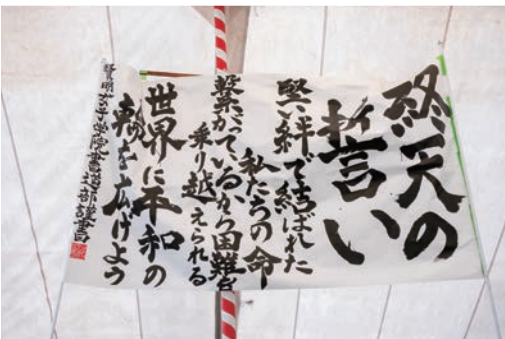 終天の
誓い
堅い絆で結ばれた
私たちの命
繋がっているから困難を
乗り越えられる
世界に平和の
輪を広げよう
賢明女子学院書道部謹書